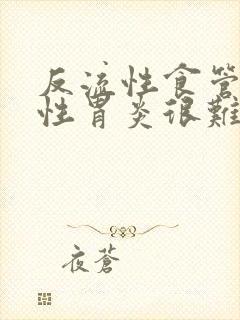 反流性食管
性胃炎很難
夜蒼